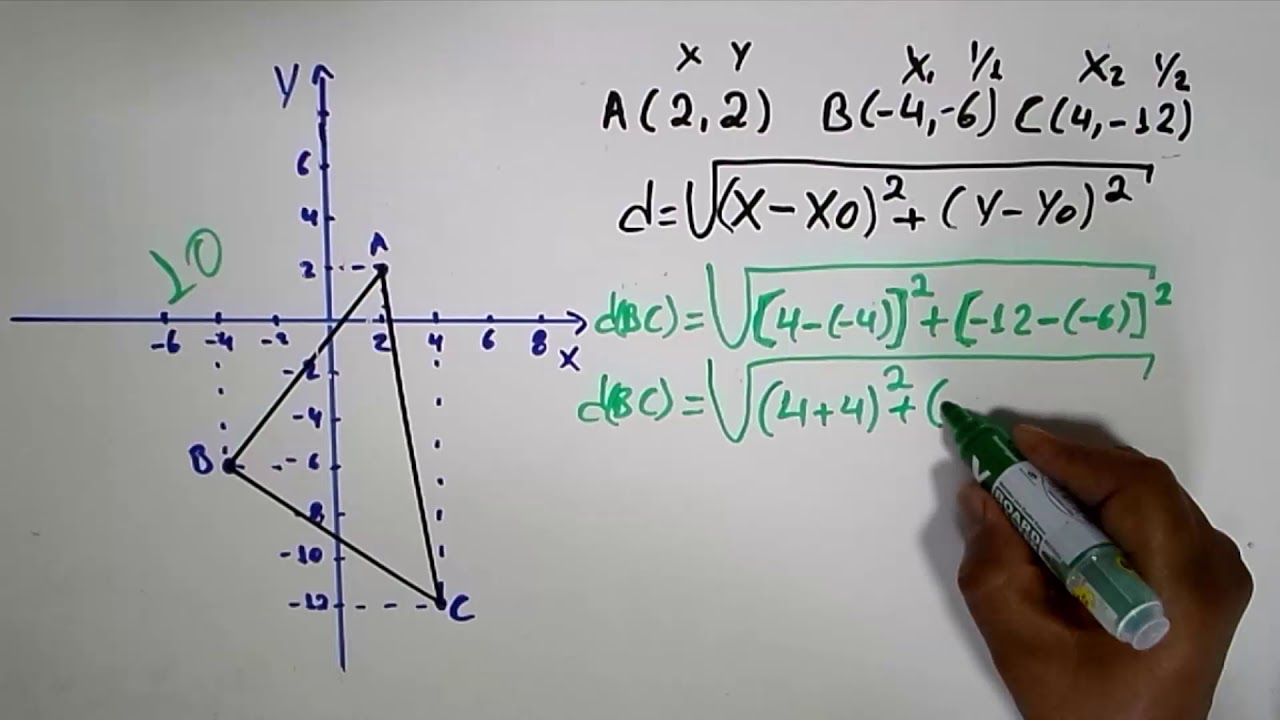 X Y X₁ Y₁ X₂ Y₂
A(2,2) B(-4,-6) C(4,-12)
d=√(X-X0)²+(Y-Y0)²
d(BC)=√[4-(-4)]²+[-12-(-6)]²
d(BC)=√(4+4)²+(
Y
6
4
A
2
10
-6 -4 -2 2 4 6 8 X
-2
-4
B -6
-8
-10
-12 C
BOARD